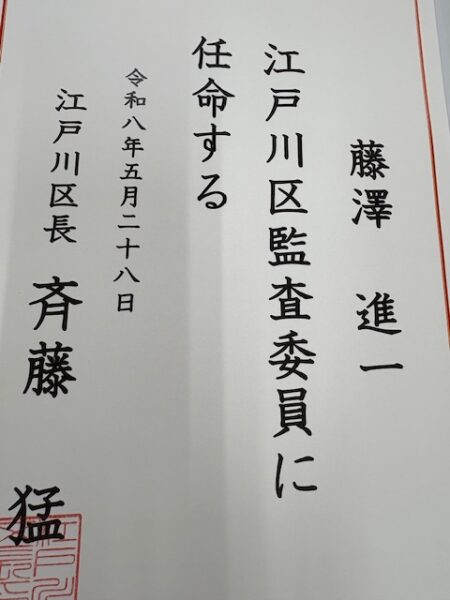 藤澤 進一
江戸川区監査委員に
任命する
令和八年五月二十八日
江戸川区長 斉藤 猛